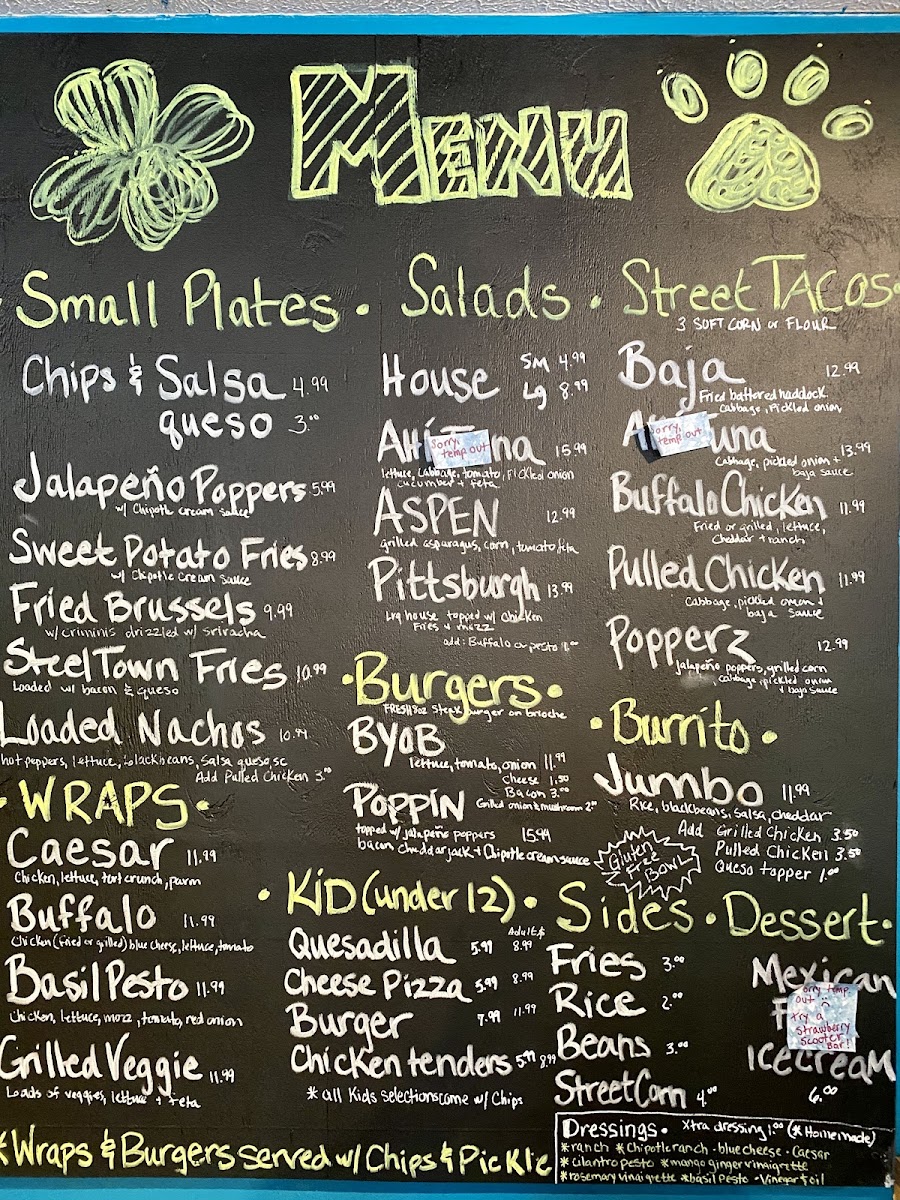 Menu
Small Plates.
Chips & Salsa 4.99
queso 3.00
Jalapeño Poppers 5.99
w/ Chipotle cream sauce
Sweet Potato Fries 8.99
w/ Chipotle Cream Sauce
Fried Brussels 9.99
w/ criminis drizzled w/ sriracha
Steel Town Fries 10.99
Loaded w/ bacon & queso
Loaded Nachos 10.99
hot peppers, lettuce, blackbeans, salsa queso, sc
Add Pulled Chicken 3.00
• WRAPS •
Caesar 11.99
Chicken, lettuce, tort crunch, parm
Buffalo 11.99
Chicken (fried or grilled) blue cheese, lettuce, tomato
Basil Pesto 11.99
Chicken, lettuce, mozz, tomato, red onion
Grilled Veggie 11.99
Loads of veggies, lettuce + feta
*Wraps & Burgers served w/ Chips & Pickle
Salads •
House Sm 4.99
Lg 8.99
Ahi Tuna 15.99
Sorry, temp out
lettuce, cabbage, tomato, pickled onion
cucumber + feta
ASPEN 12.99
grilled asparagus, corn, tomato feta
Pittsburgh 13.99
Lrg house topped w/ Chicken
Fries + mozz
add: Buffalo or pesto 1.00
• Burgers •
FRESH 8oz Steak burger on brioche
BYOB
lettuce, tomato, onion 11.99
Cheese 1.50
Bacon 3.00
Grilled onion & mushroom 2.00
POPPIN
topped w/ jalapeño poppers 15.99
bacon cheddarjack + Chipotle cream sauce
• KiD (under 12) •
Adult $
Quesadilla 5.99 8.99
Cheese Pizza 5.99 8.99
Burger 7.99 11.99
Chicken tenders 5.99 8.99
* all Kids selections come w/ Chips
Street TACOS •
3 SOFT CORN or FLOUR
Baja 12.99
Fried battered haddock
cabbage, Pickled onion
Ahi Tuna 13.99
Sorry, temp out
Cabbage, pickled onion +
baja sauce
Buffalo Chicken 11.99
Fried or grilled, lettuce,
cheddar + ranch
Pulled Chicken 11.99
Cabbage, pickled onion +
baja sauce
Popperz 12.99
jalapeño poppers, grilled corn
cabbage, pickled onion
+ baja sauce
• Burrito •
Jumbo 11.99
Rice, blackbeans, salsa, cheddar
Add Grilled Chicken 3.50
Pulled Chicken 3.50
Queso topper 1.00
Gluten
Free
Bowl
Sides •
Fries 3.00
Rice 2.00
Beans 3.00
Street Corn 4.00
Dessert •
Mexican
F
Sorry temp.
out
try a
strawberry
scooter
Bar!
ice cream
6.00
Dressings. Xtra dressing 1.00 (* Homemade)
*ranch *Chipotle ranch • blue cheese • Caesar
*cilantro pesto *mango ginger vinaigrette
*rosemary vinaigrette *basil pesto • Vinegar & oil